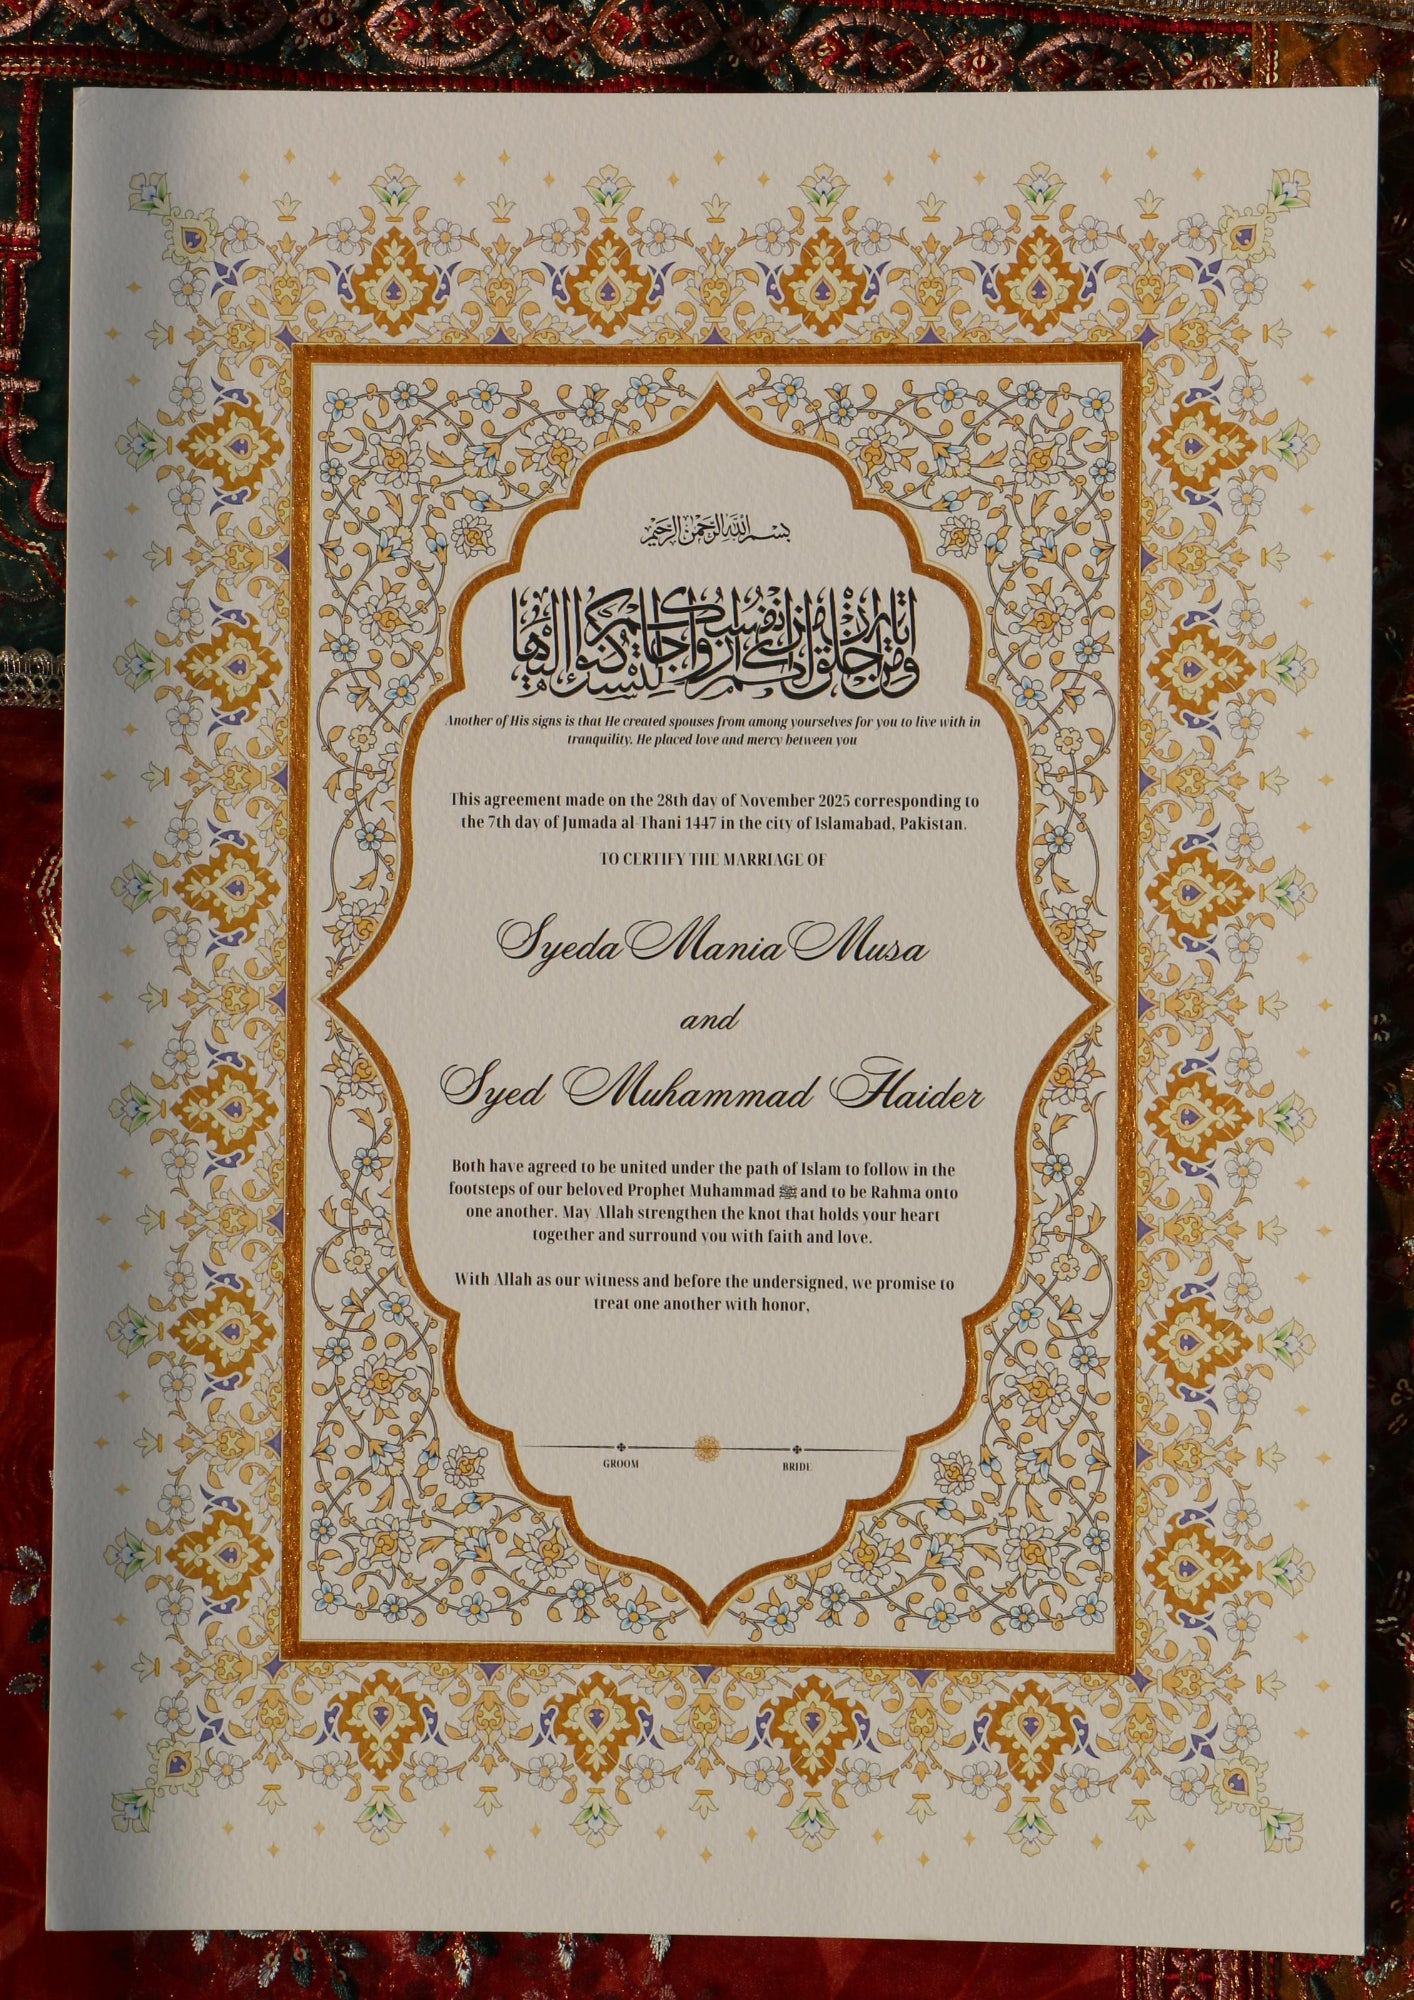 بسم الله الرحمن الرحيم
ومن آياته أن خلق لكم من أنفسكم أزواجا لتسكنوا إليها
Another of His signs is that He created spouses from among yourselves for you to live with in
tranquility. He placed love and mercy between you
This agreement made on the 28th day of November 2025 corresponding to
the 7th day of Jumada al-Thani 1447 in the city of Islamabad, Pakistan.
TO CERTIFY THE MARRIAGE OF
Syeda Mania Musa
and
Syed Muhammad Haider
Both have agreed to be united under the path of Islam to follow in the
footsteps of our beloved Prophet Muhammad ﷺ and to be Rahma onto
one another. May Allah strengthen the knot that holds your heart
together and surround you with faith and love.
With Allah as our witness and before the undersigned, we promise to
treat one another with honor,
GROOM BRIDE